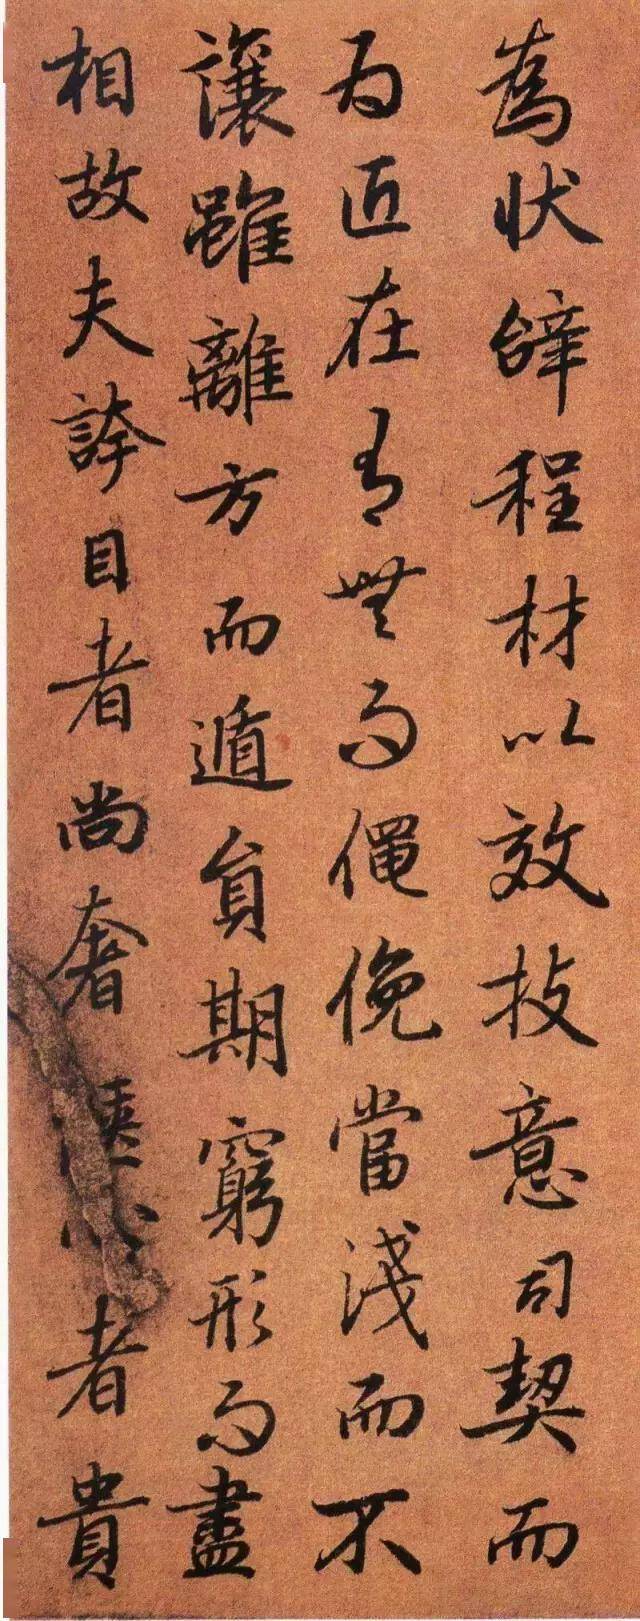 為狀辝程材以效技意司契而
為匠在有無而僶俛當淺而不
讓雖離方而遁員期窮形而盡
相故夫誇目者尚奢心者貴